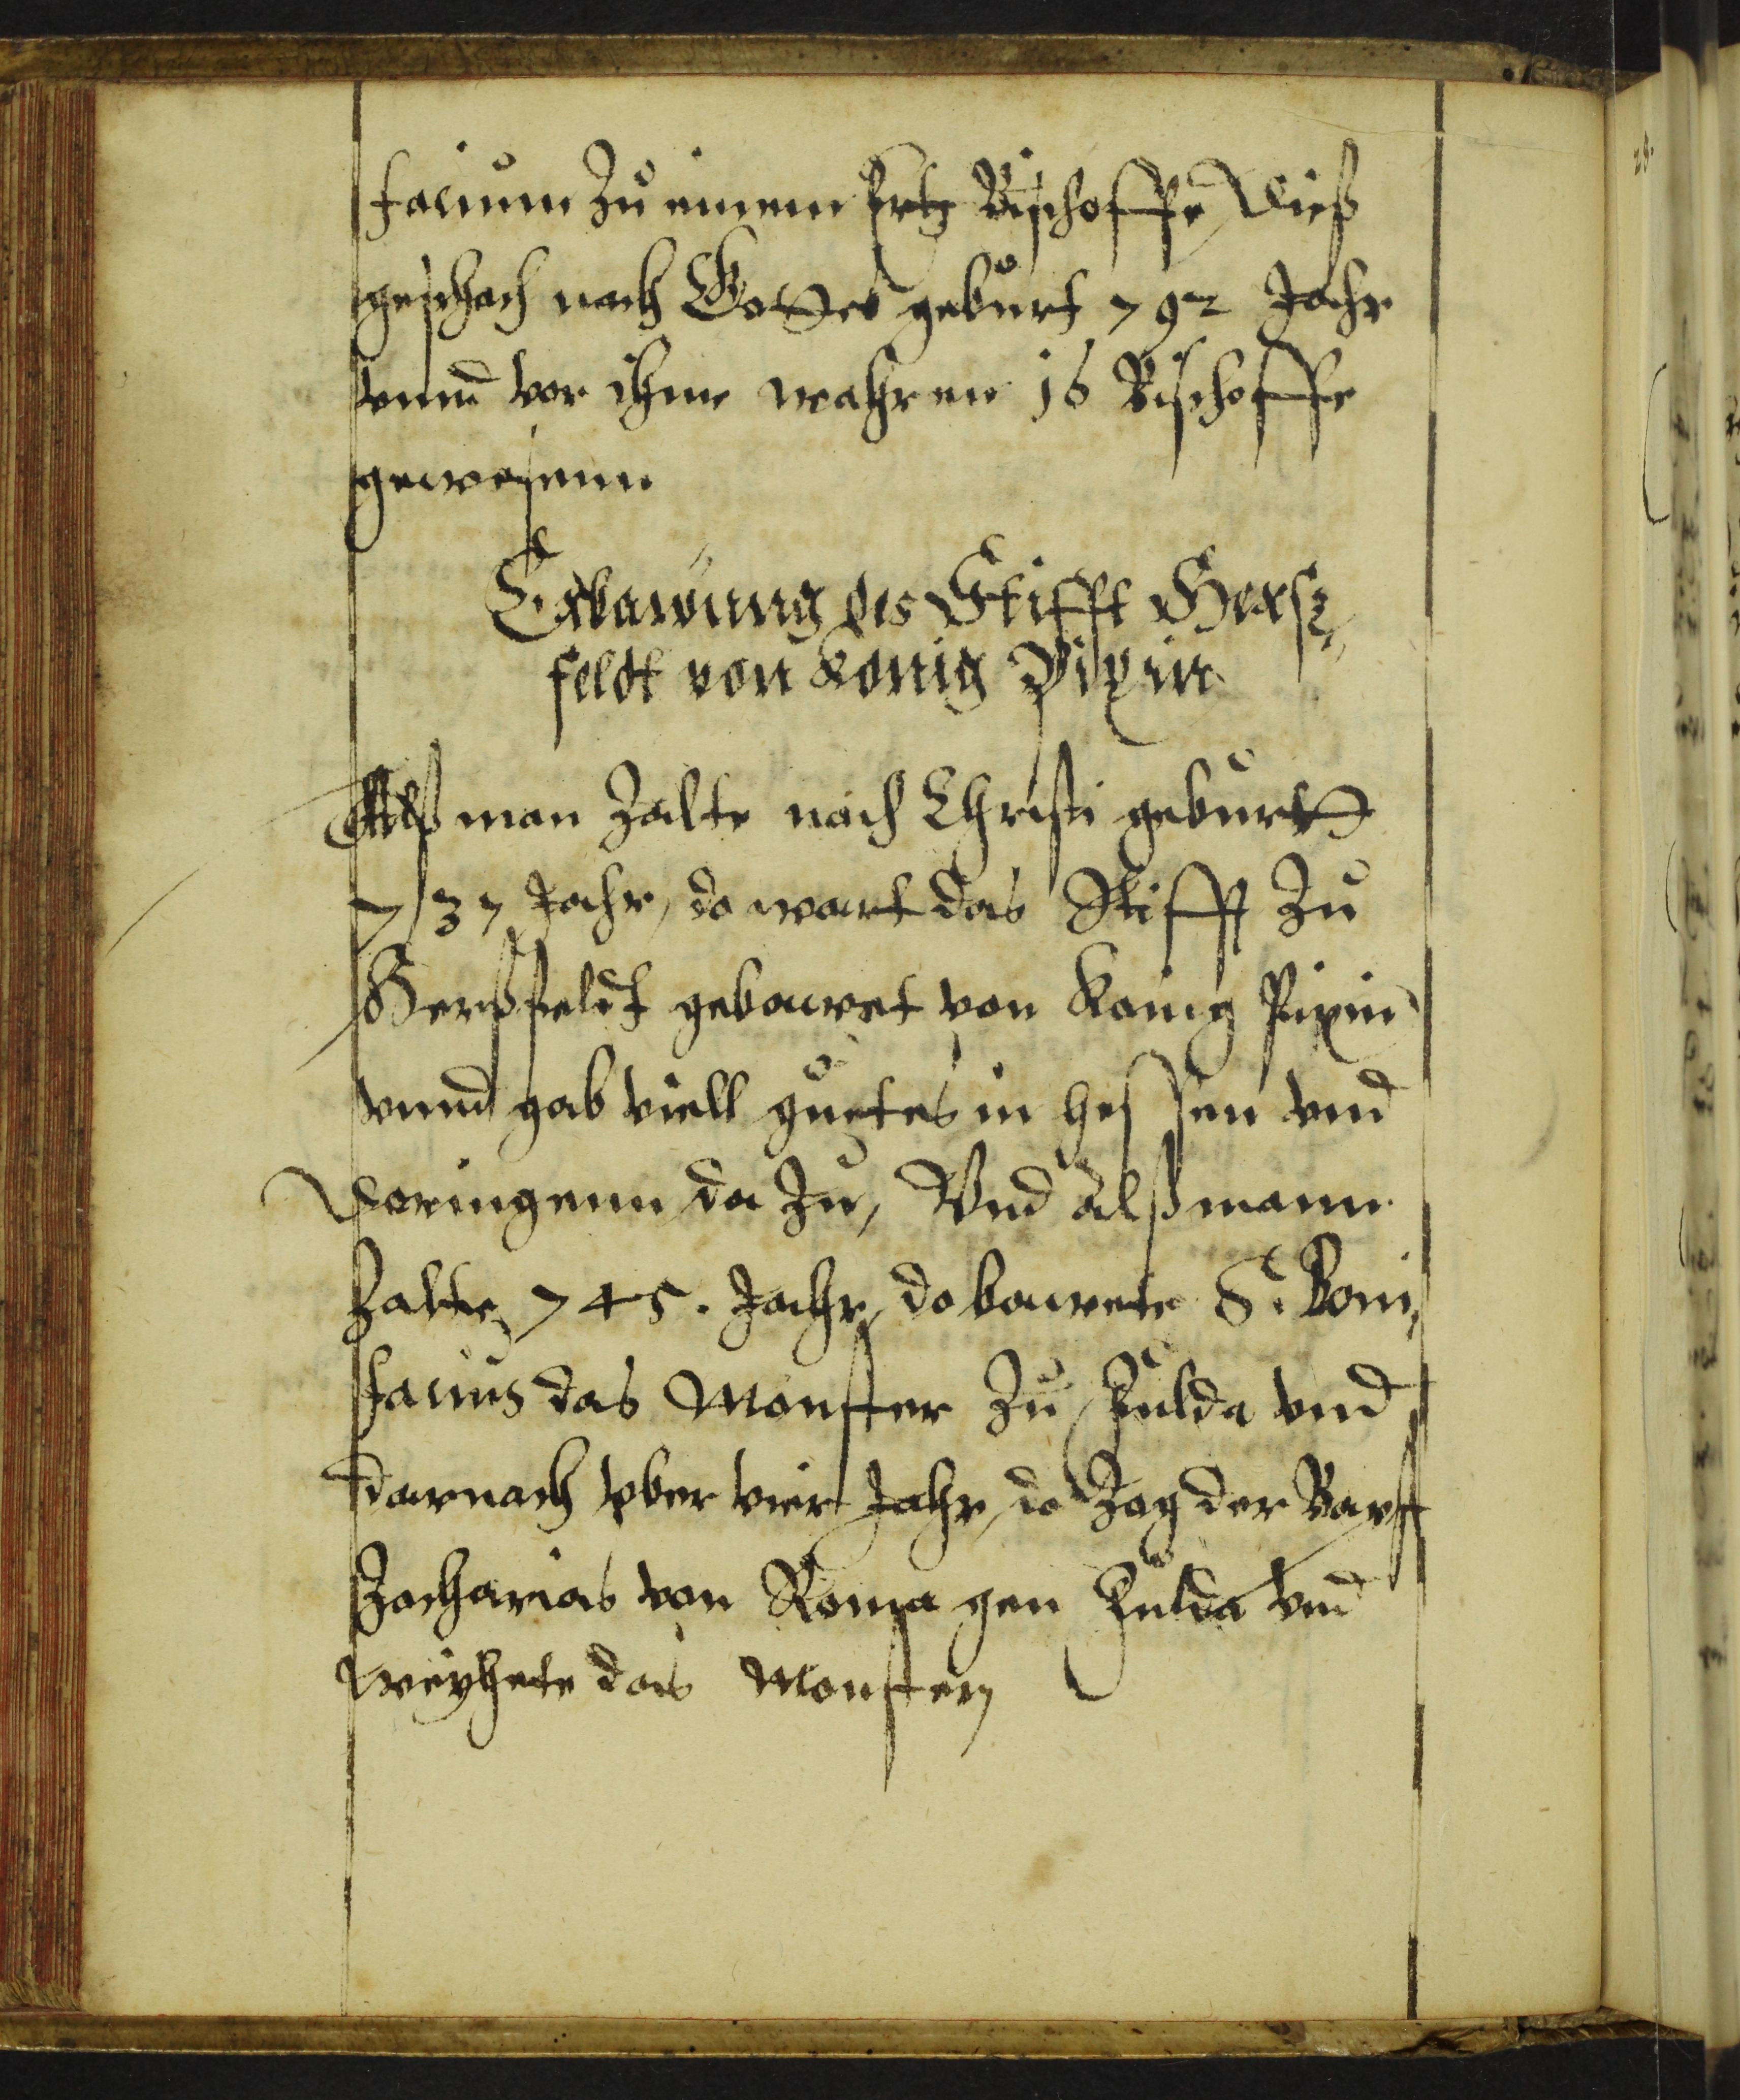 facium zu einem Ertz Bischoffe, Dieß
geschach nach Gottes geburt 792 Jahr
vnnd vor ihme wahren 16 Bischoffe
gewesenn
Erbawung des Stifft Hersz,
feldt von König Pipin
Alß man zalte nach Christi geburtt
737 Jahr, da wart das Stifft zu
Herßfeldt gebawet von Konig Pipin
vnnd gab viell gutes in Hessen vnd
Doringenn da zu, Vnd alß mann
zalte 745. Jahr, do bawete S. Boni,
facius das Monster zu Fulda vnd
darnach vber vier Jahr, do zog der Bapst
Zacharias von Roma gen Fulda vnd
weyhete das Monster